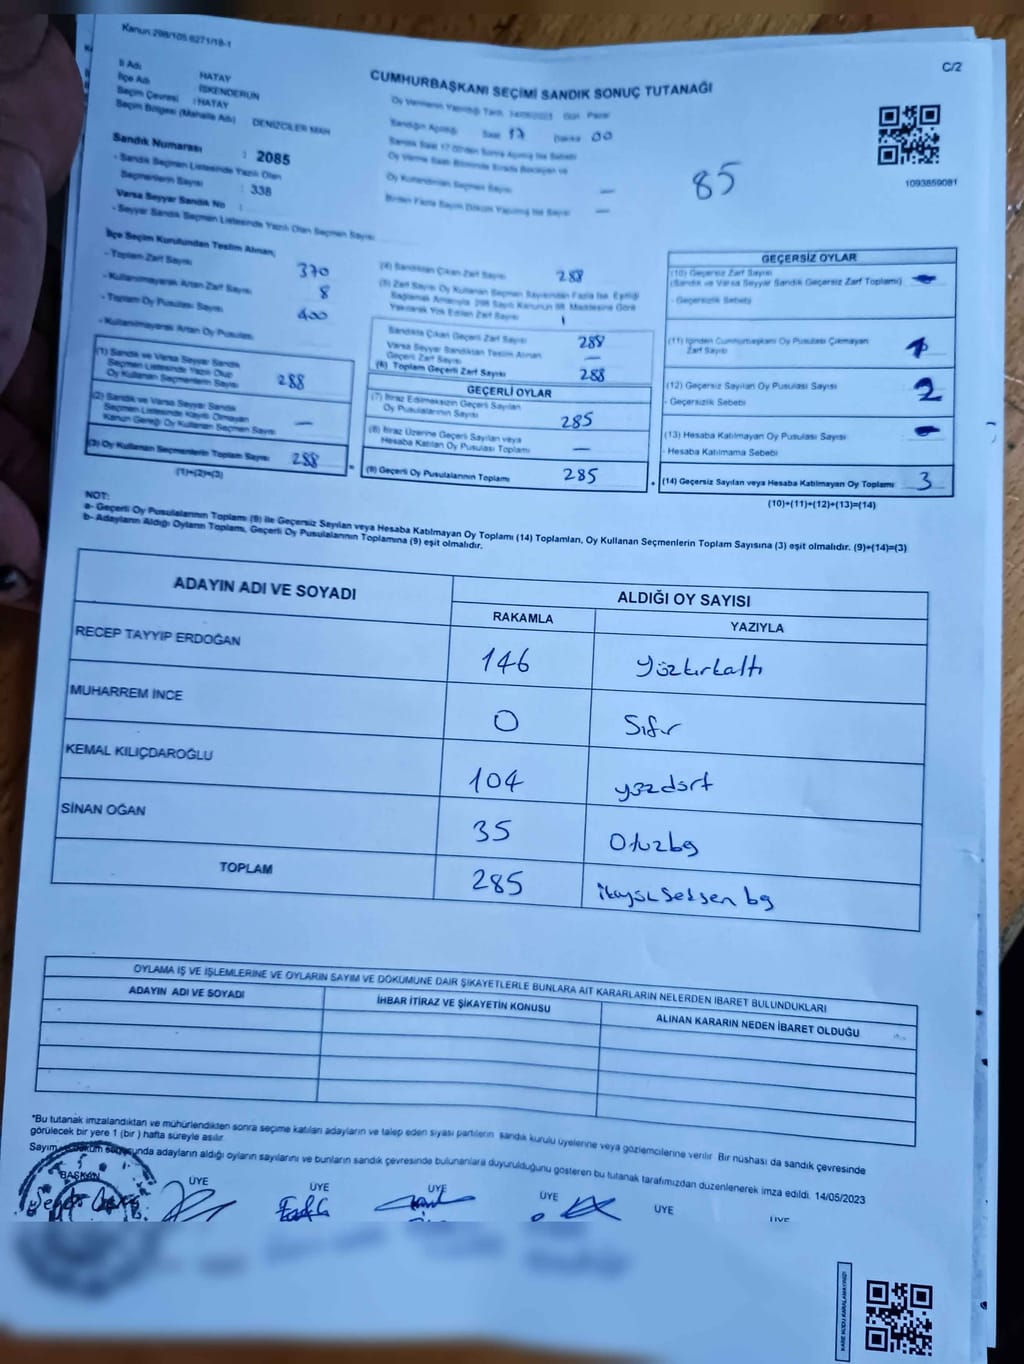 Kanun:298/105.6271/18-1
C/2
CUMHURBAŞKANI SEÇİMİ SANDIK SONUÇ TUTANAĞI
İl Adı HATAY
İlçe Adı İSKENDERUN
Seçim Çevresi : HATAY
Seçim Bölgesi (Mahalle Adı) DENİZCİLER MAH
Sandık Numarası : 2085
- Sandık Seçmen Listesinde Yazılı Olan
Seçmenlerin Sayısı : 338
Varsa Seyyar Sandık No :
- Seyyar Sandık Seçmen Listesinde Yazılı Olan Seçmen Sayısı
Oy Vermenin Yapıldığı Tarih 14/05/2023 Gün Pazar
Sandığın Açıldığı Saat 17 Dakika 00
Oy Kullandırılan Seçmen Sayısı —
Birden Fazla Sayım Döküm Yapılmış İse Sayısı —
85
1093859081
İlçe Seçim Kurulundan Teslim Alınan;
- Toplam Zarf Sayısı 370
- Kullanılmayarak Artan Zarf Sayısı 8
- Toplam Oy Pusulası Sayısı 400
- Kullanılmayarak Artan Oy Pusulası
(1) Sandık ve Varsa Seyyar Sandık
Seçmen Listesinde Yazılı Olup
Oy Kullanan Seçmenlerin Sayısı 288
(2) Sandık ve Varsa Seyyar Sandık
Seçmen Listesinde Kayıtlı Olmayan
Kanun Gereği Oy Kullanan Seçmen Sayısı —
(3) Oy Kullanan Seçmenlerin Toplam Sayısı 288
(1)+(2)=(3)
(4) Sandıktan Çıkan Zarf Sayısı 288
(5) Zarf Sayısı Oy Kullanan Seçmen Sayısından Fazla İse, Eşitliği
Sağlamak Amacıyla 298 Sayılı Kanunun 98. Maddesine Göre
Yakılarak Yok Edilen Zarf Sayısı
Sandıkta Çıkan Geçerli Zarf Sayısı 288
Varsa Seyyar Sandıktan Teslim Alınan
Geçerli Zarf Sayısı —
(6) Toplam Geçerli Zarf Sayısı 288
GEÇERLİ OYLAR
(7) İtiraz Edilmeksizin Geçerli Sayılan
Oy Pusulalarının Sayısı 285
(8) İtiraz Üzerine Geçerli Sayılan veya
Hesaba Katılan Oy Pusulası Toplamı —
(9) Geçerli Oy Pusulalarının Toplamı 285
GEÇERSİZ OYLAR
(10) Geçersiz Zarf Sayısı
(Sandık ve Varsa Seyyar Sandık Geçersiz Zarf Toplamı)
- Geçersizlik Sebebi
(11) İçinden Cumhurbaşkanı Oy Pusulası Çıkmayan
Zarf Sayısı 1
(12) Geçersiz Sayılan Oy Pusulası Sayısı 2
- Geçersizlik Sebebi
(13) Hesaba Katılmayan Oy Pusulası Sayısı
- Hesaba Katılmama Sebebi
(14) Geçersiz Sayılan veya Hesaba Katılmayan Oy Toplamı 3
(10)+(11)+(12)+(13)=(14)
NOT:
a- Geçerli Oy Pusulalarının Toplamı (9) ile Geçersiz Sayılan veya Hesaba Katılmayan Oy Toplamı (14) Toplamları, Oy Kullanan Seçmenlerin Toplam Sayısına (3) eşit olmalıdır. (9)+(14)=(3)
b- Adayların Aldığı Oyların Toplamı, Geçerli Oy Pusulalarının Toplamına (9) eşit olmalıdır.
ADAYIN ADI VE SOYADI ALDIĞI OY SAYISI
RAKAMLA YAZIYLA
RECEP TAYYİP ERDOĞAN 146 Yüzkırkaltı
MUHARREM İNCE 0 Sıfır
KEMAL KILIÇDAROĞLU 104 yüzdört
SİNAN OĞAN 35 Otuzbeş
TOPLAM 285 ikiyüzseksen beş
OYLAMA İŞ VE İŞLEMLERİNE VE OYLARIN SAYIM VE DÖKÜMÜNE DAİR ŞİKAYETLERLE BUNLARA AİT KARARLARIN NELERDEN İBARET BULUNDUKLARI
ADAYIN ADI VE SOYADI İHBAR İTİRAZ VE ŞİKAYETİN KONUSU ALINAN KARARIN NEDEN İBARET OLDUĞU
*Bu tutanak imzalandıktan ve mühürlendikten sonra seçime katılan adayların ve talep eden siyasi partilerin sandık kurulu üyelerine veya gözlemcilerine verilir. Bir nüshası da sandık çevresinde
görülecek bir yere 1 (bir ) hafta süreyle asılır.
Sayım ve döküm sonunda adayların aldığı oyların sayılarını ve bunların sandık çevresinde bulunanlara duyurulduğunu gösteren bu tutanak tarafımızdan düzenlenerek imza edildi. 14/05/2023
BAŞKAN ÜYE ÜYE ÜYE ÜYE ÜYE ÜYE
KARE KODU KARALAMAYINIZ!